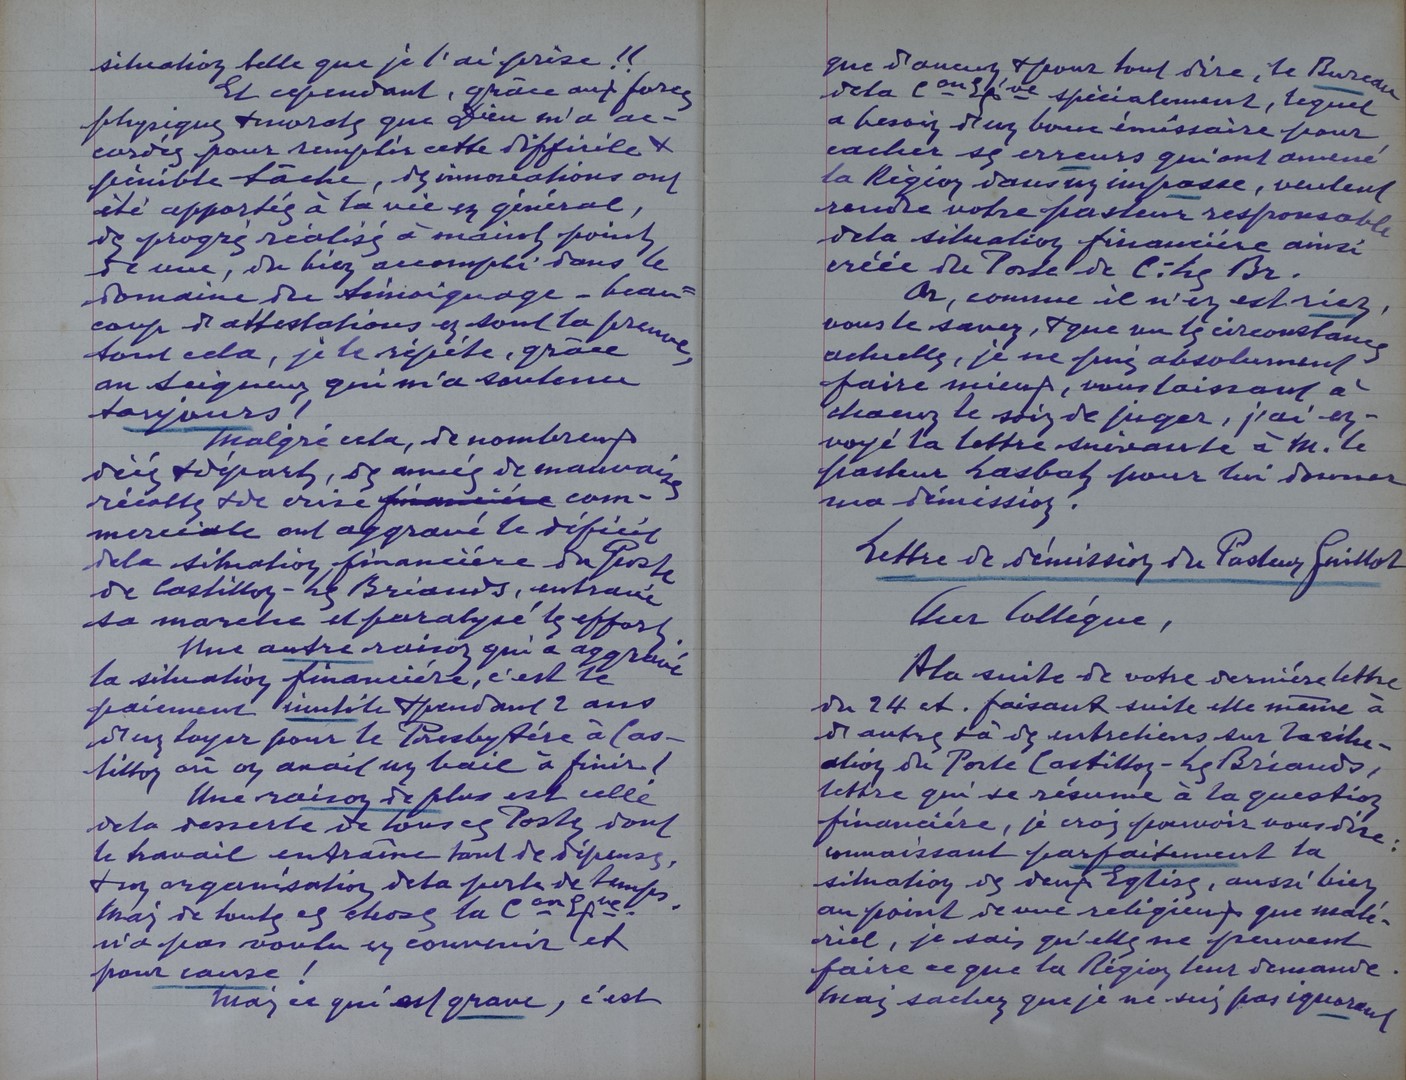 situation telle que je l'ai prise !!
Et cependant, grâce aux forces
physiques & morales que Dieu m'a ac-
cordées pour remplir cette difficile &
pénible tâche, des innovations ont
été apportées à la vie en général,
des progrès réalisés à maints points
de vue, du bien accompli dans le
domaine du témoignage - beau=
coup d'attestations en sont la preuve,
tout cela, je le répète, grâce
au Seigneur qui m'a soutenu
toujours !
Malgré cela, de nombreux
décès & départs, des années de mauvaises
récoltes & de crise financière com-
merciale ont aggravé le déficit
de la situation financière du Poste
de Castillon-les Briands, entravé
sa marche et paralysé les efforts.
Une autre raison qui a aggravé
la situation financière, c'est le
paiement inutile & pendant 2 ans
d'un loyer pour le Presbytère à Cas-
tillon où on avait un bail à finir !
Une raison de plus est celle
de la desserte de tous ces Postes dont
le travail entraîne tant de dépenses,
& son organisation de la perte de temps.
Mais de toutes ces choses la C on Ex ve
n'a pas voulu en convenir et
pour cause !
Mais ce qui est grave, c'est
que d'aucuns & pour tout dire, le Bureau
de la C on Ex ve spécialement, lequel
a besoin d'un bouc émissaire pour
cacher ses erreurs qui ont amené
la Région dans un impasse, veulent
rendre votre pasteur responsable
de la situation financière ainsi
créée du Poste de C.-les Br.
Or, comme il n'en est rien,
vous le savez, & que vu les circonstances
actuelles, je ne puis absolument
faire mieux, vous laissant à
chacun le soin de juger, j'ai en-
voyé la lettre suivante à M. le
pasteur Lasbats pour lui donner
ma démission.
Lettre de démission du Pasteur Guillot
Cher Collègue,
A la suite de votre dernière lettre
du 24 ct. faisant suite elle même à
d'autres & à des entretiens sur la situ-
ation du Poste Castillon-les Briands,
lettre qui se résume à la question
financière, je crois pouvoir vous dire :
connaissant parfaitement la
situation des deux Eglises, aussi bien
au point de vue religieux que maté-
riel, je sais qu'elles ne peuvent
faire ce que la Région leur demande.
Mais sachez que je ne suis pas ignorant